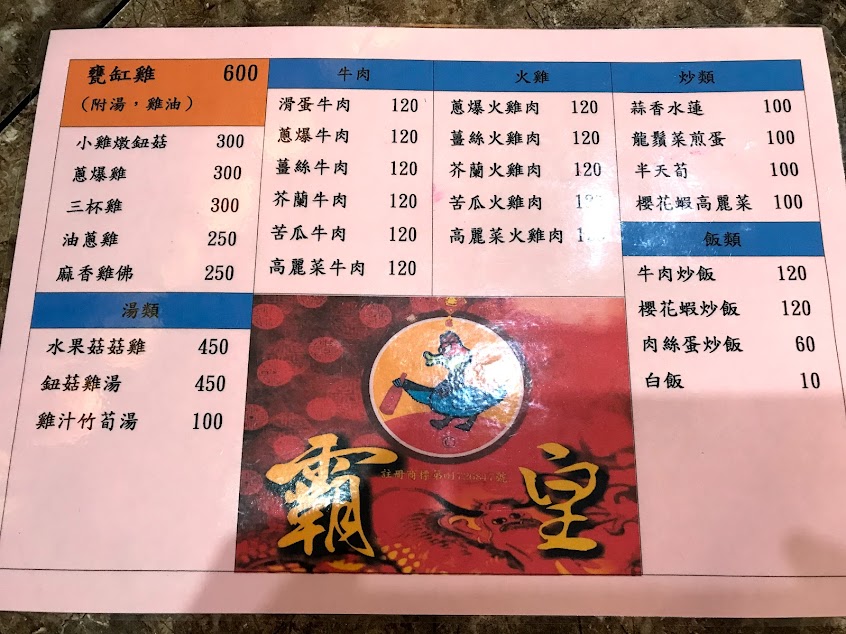 甕缸雞 600
（附湯，雞油）
小雞燉鈕菇 300
蔥爆雞 300
三杯雞 300
油蔥雞 250
麻香雞佛 250
湯類
水果菇菇雞 450
鈕菇雞湯 450
雞汁竹荀湯 100
牛肉
滑蛋牛肉 120
蔥爆牛肉 120
薑絲牛肉 120
芥蘭牛肉 120
苦瓜牛肉 120
高麗菜牛肉 120
火雞
蔥爆火雞肉 120
薑絲火雞肉 120
芥蘭火雞肉 120
苦瓜火雞肉
高麗菜火雞肉
炒類
蒜香水蓮 100
龍鬚菜煎蛋 100
半天荀 100
櫻花蝦高麗菜 100
飯類
牛肉炒飯 120
櫻花蝦炒飯 120
肉絲蛋炒飯 60
白飯 10
霸皇